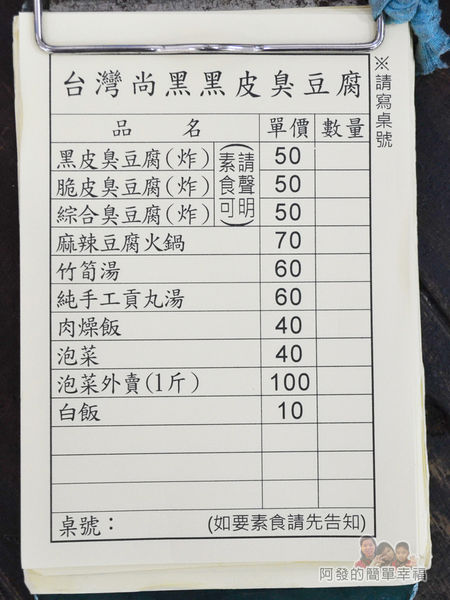 台灣尚黑黑皮臭豆腐
※請寫桌號
品 名 單價 數量
黑皮臭豆腐(炸) 50
脆皮臭豆腐(炸) 50
綜合臭豆腐(炸) 50
(請聲明素食可)
麻辣豆腐火鍋 70
竹筍湯 60
純手工貢丸湯 60
肉燥飯 40
泡菜 40
泡菜外賣(1斤) 100
白飯 10
桌號： (如要素食請先告知)
阿發的簡單幸福